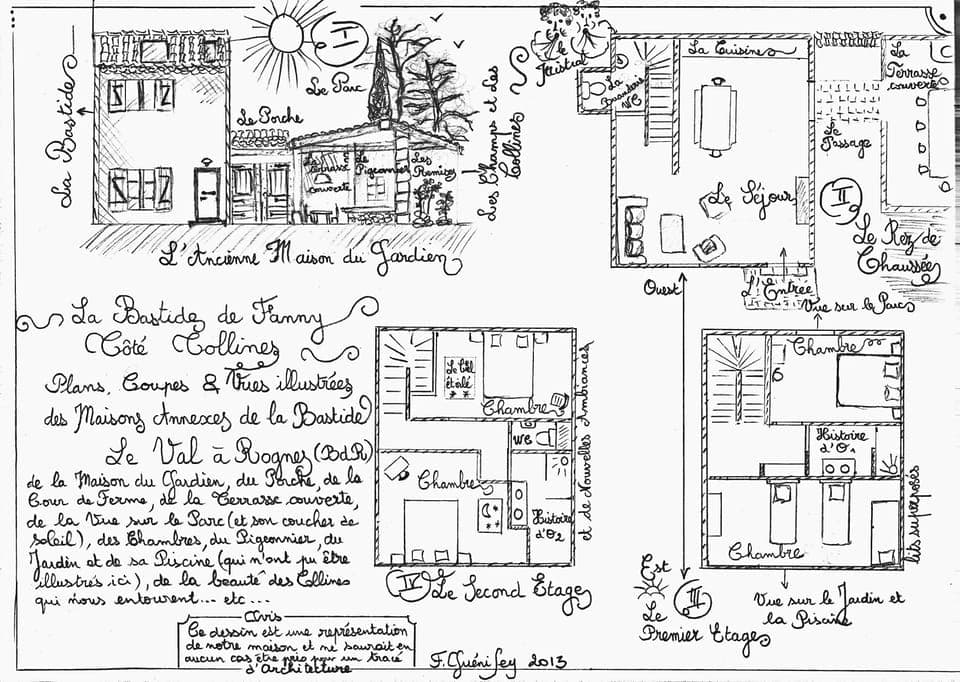 La Bastide
I
Le Parc
Le Porche
La
Terrasse
couverte
Le
Pigeonnier
Les
Remises
Les Champs et Les
Collines
L'Ancienne Maison du Gardien
le
Mistral
La Cuisine
La
Buanderie
WC
Le Séjour
L'Entrée
La
Terrasse
couverte
Le
Passage
II
Le Rez de
Chaussée
Ouest
La Bastide de Fanny
Côté Collines
Plans, Coupes & Vues illustrées
des Maisons Annexes de la Bastide
Le Val à Rognes (BdR)
de la Maison du Gardien, du Porche, de la
Cour de Ferme, de la Terrasse couverte,
de la Vue sur le Parc (et son coucher de
soleil), des Chambres, du Pigeonnier, du
Jardin et de sa Piscine (qui n'ont pu être
illustrés ici), de la beauté des Collines
qui nous entourent... etc...
Avis
Ce dessin est une représentation
de notre maison et ne saurait en
aucun cas être pris pour un tracé
d'Architecture
F. Guénifey 2013
Le Ciel
étoilé
Chambre
WC
Chambre
Histoire
d'O2
et de Nouvelles Ambiances
IV
Le Second Etage
Vue sur le Parc
Chambre
Histoire
d'O1
Chambre
lits superposés
Vue sur le Jardin et
la Piscine
Est
III
Le
Premier Etage